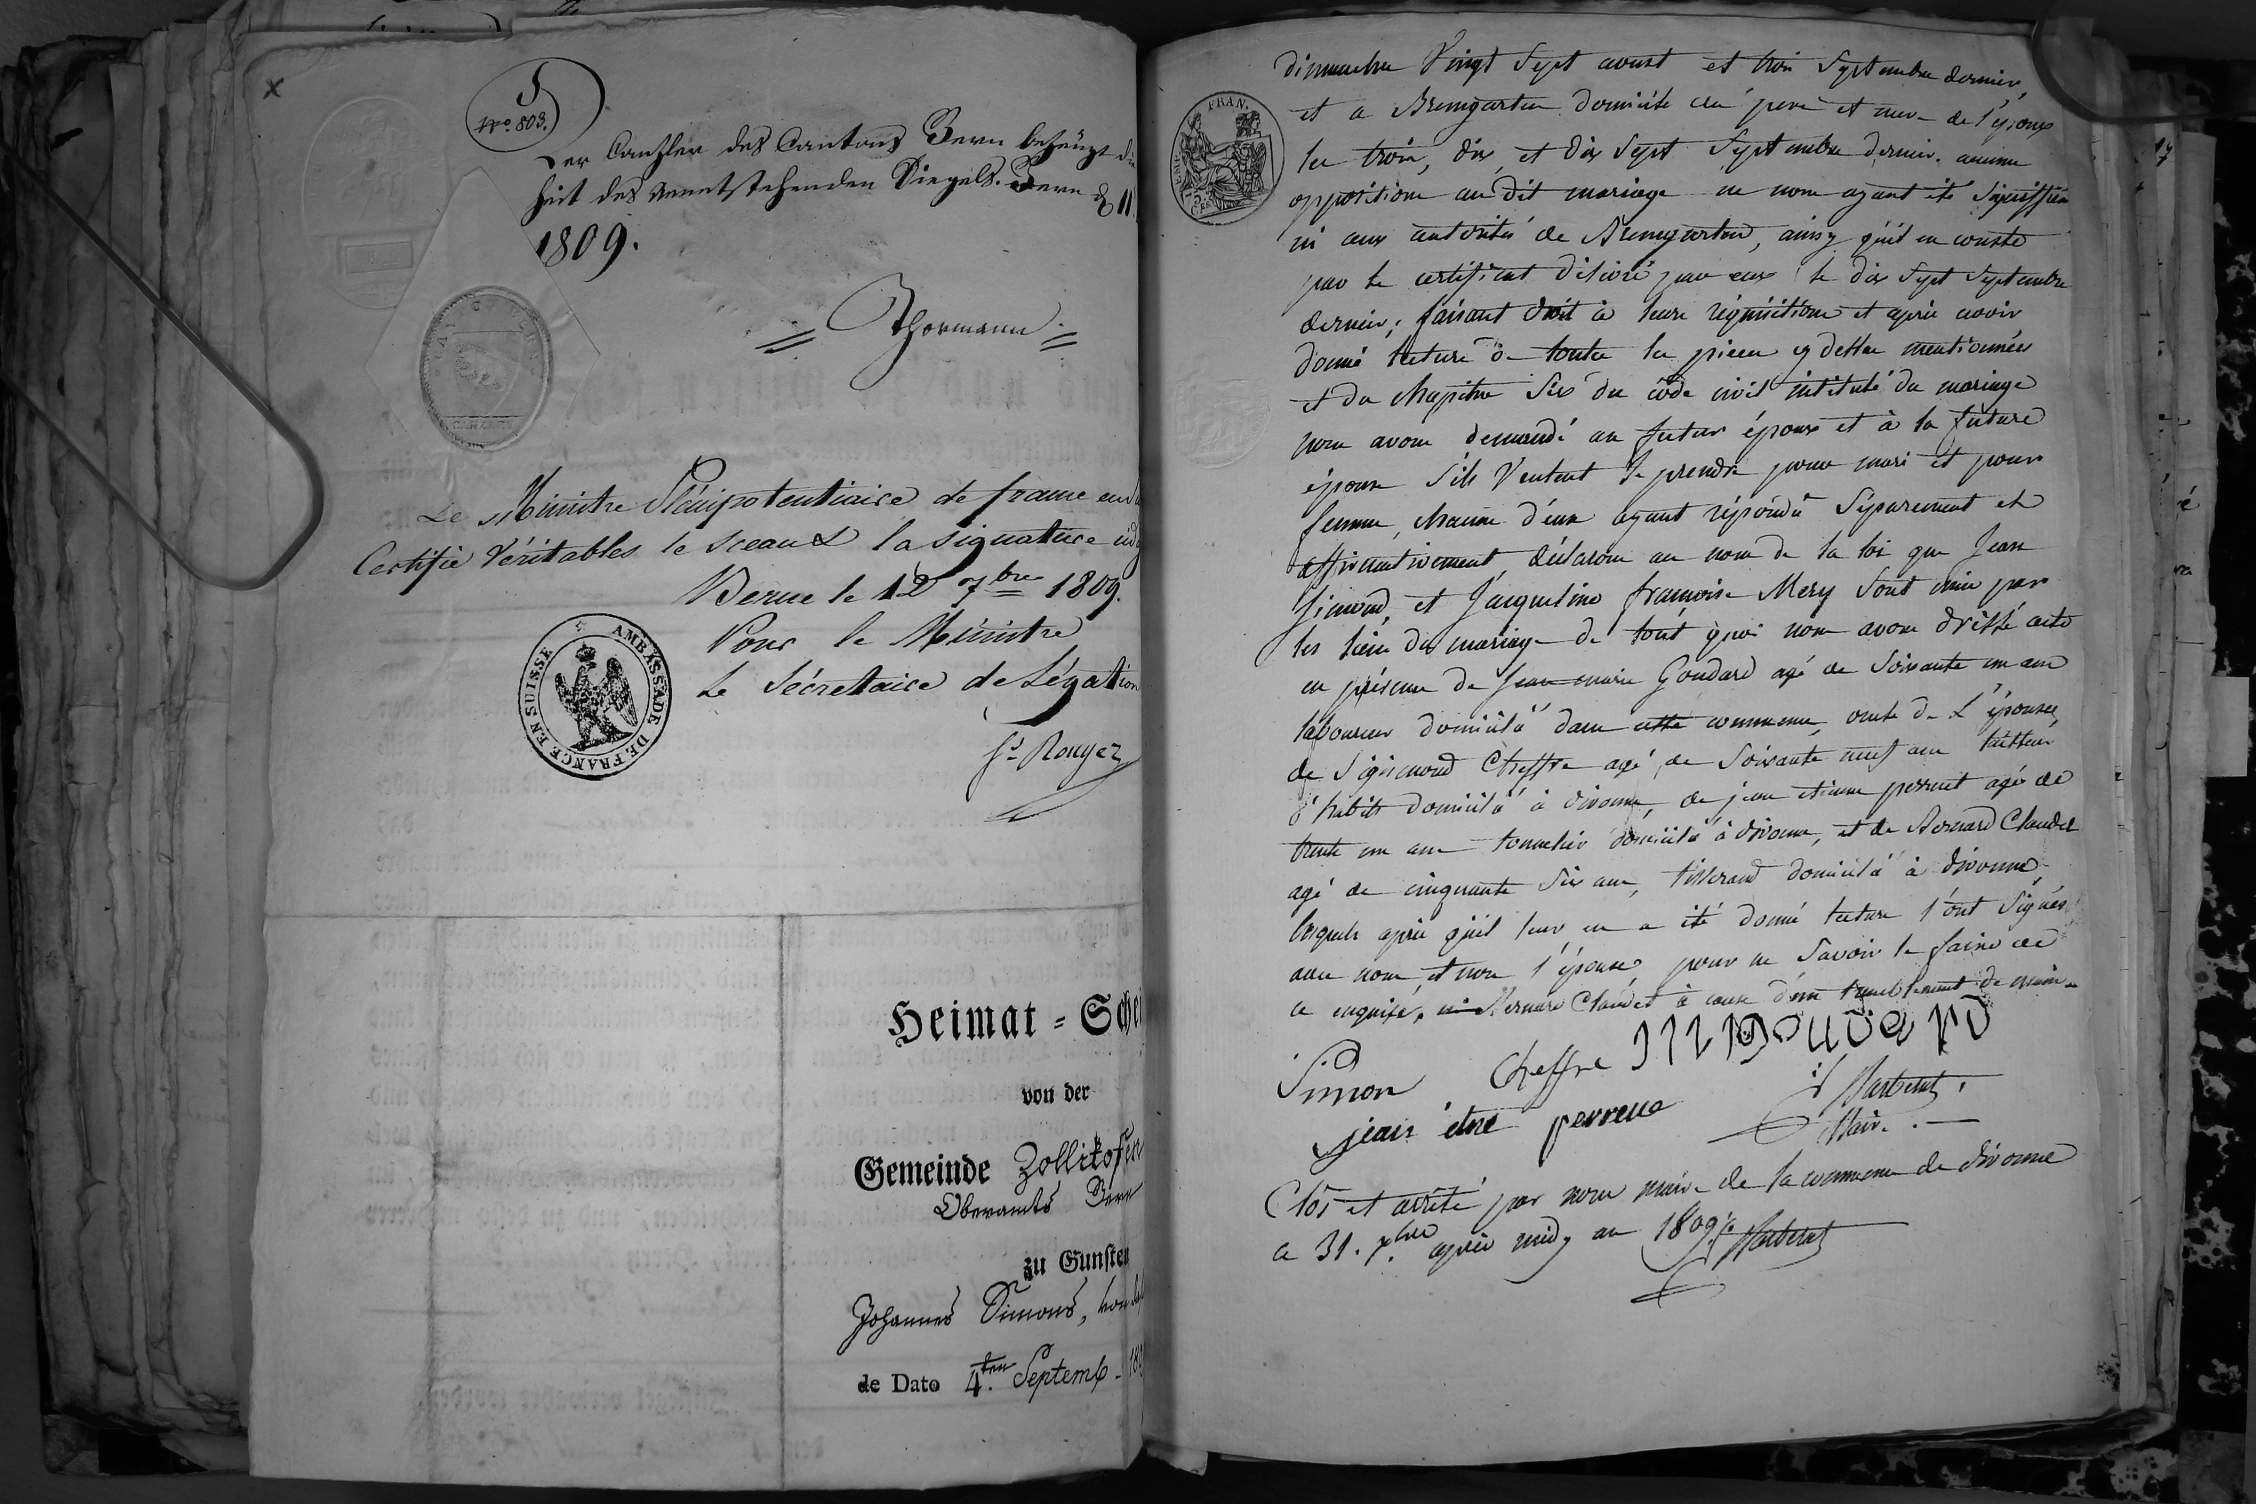 5
No. 803.
Der Canzler des Cantons Bern bezeügt die
heit des nebentstehenden Siegels. Bern d 11
1809.
Thormann
Le Ministre Plénipotentiaire de france en
Certifie Véritables le sceau & la signature
Berne le 12 7bre 1809.
Pour le Ministre
Le Sécretaire de Légation
Rouyer
AMBASSADE DE FRANCE EN SUISSE
Heimat-Schei
von der
Gemeinde Zollikofen
Oberamts Bern
zu Gunsten
Johannes Simons, von
de Dato 4.ten Septemb. 18
FRAN.
dimanche Vingt Sept aoust et trois Septembre dernier,
et a Bremgarten domicile des pere et mere de l'époux
les trois, dix et dix Sept Septembre dernier. aucune
opposition au dit mariage ne nous ayant été Signiffiée
ni aux autorités de Bremgarten, ainsy qu'il en conste
par le certificat délivré par eux le dix Sept Septembre
dernier; faisant droit à leur réquisition et après avoir
donné lecture de toutes les pieces cy dessus mentionnées
et du chapitre Six du code civil intitulé du mariage
nous avons demandé au futur époux et à la future
épouse S'ils Veulent Se prendre pour mari et pour
femme, chacun d'eux ayant répondu Séparement et
affirmativement, déclarons au nom de la loi que Jean
Simond, et Jacqueline francoise Mery Sont unis par
les liens du mariage de tout quoi nous avons dréssé acte
en présence de Jean marie Goudard agé de Soixante un ans
laboureur domicilié dans cette commune, oncle de L'épouse,
de Sigismond Cheffre agé de Soixante neuf ans tailleur
d'habits domicilié à divonne, de jean etienne perruet agé de
trente un ans tonnelier domicilié à divonne, et de Bernard Claudet
agé de cinquante Six ans, tisserand domicilié à divonne,
lesquels après qu'il leur en a été donné lecture l'ont Signés
avec nous, et non l'épouse, pour ne Savoir le faire de
ce enquise, ni Bernard Claudet à cause d'un tremblement de main
Simon Cheffre JM Goudard
jean etne perruet
Maire
Clos et arrêté par nous maire de la commune de divonne
ce 31. xbre après midy an 1809